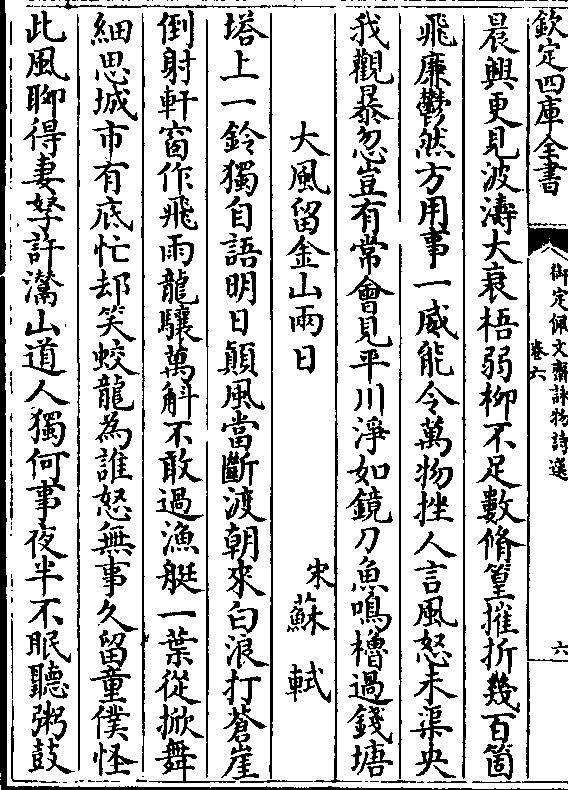 欽定四庫全書
御定佩文齋詠物詩選
卷六
六
晨興更見波濤大衰梧弱柳不足數脩篁摧折幾百箇
飛廉鬱然方用事一威能令萬物挫人言風怒未渠央
我觀暴忽豈有常會見平川淨如鏡刀魚鳴櫓過錢塘
大風留金山兩日
宋蘇軾
塔上一鈴獨自語明日顛風當斷渡朝來白浪打蒼崖
倒射軒窗作飛雨龍驤萬斛不敢過漁艇一葉從掀舞
細思城市有底忙却笑蛟龍為誰怒無事久留童僕怪
此風聊得妻孥許灊山道人獨何事夜半不眠聽粥鼓